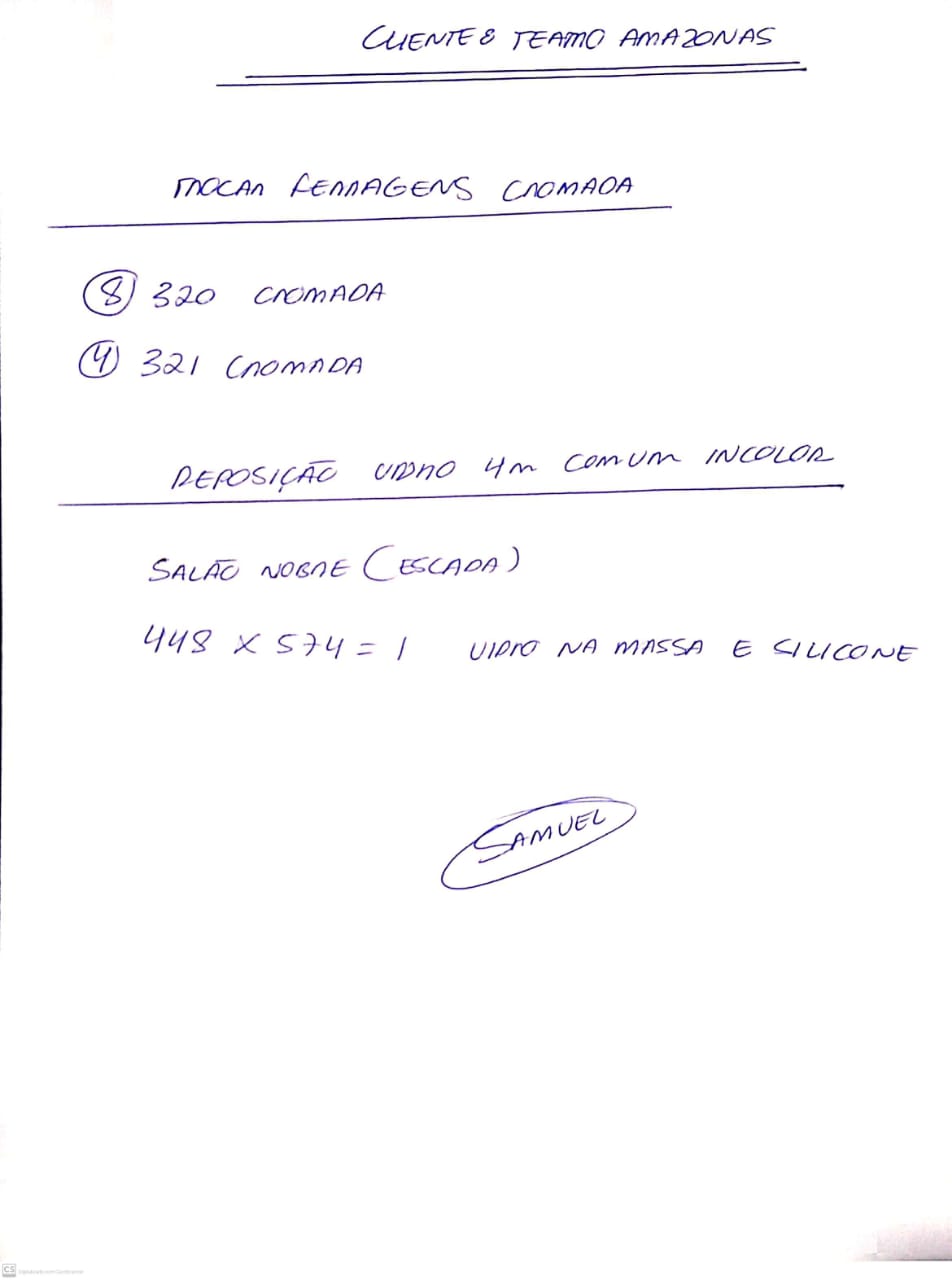 CLIENTE: TEATRO AMAZONAS
TROCAR FERRAGENS CROMADA
8 320 CROMADA
4 321 CROMADA
REPOSIÇÃO VIDRO 4m COMUM INCOLOR
SALÃO NOBRE (ESCADA)
448 X 574 = 1 VIDRO NA MASSA E SILICONE
SAMUEL
CS Digitalizado com CamScanner